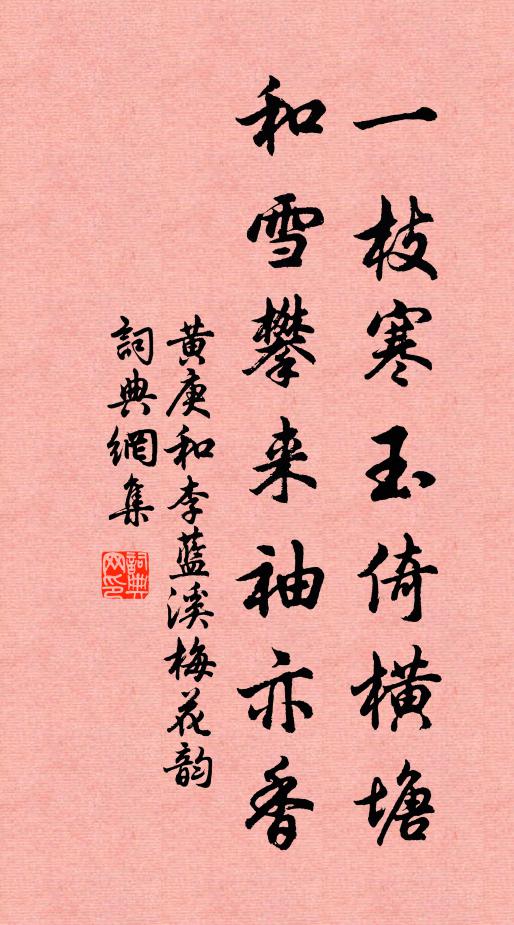 一枝寒玉倚横塘
和雪攀来袖亦香
黄庚和李蓝溪梅花韵
詞典網集
詞典网印